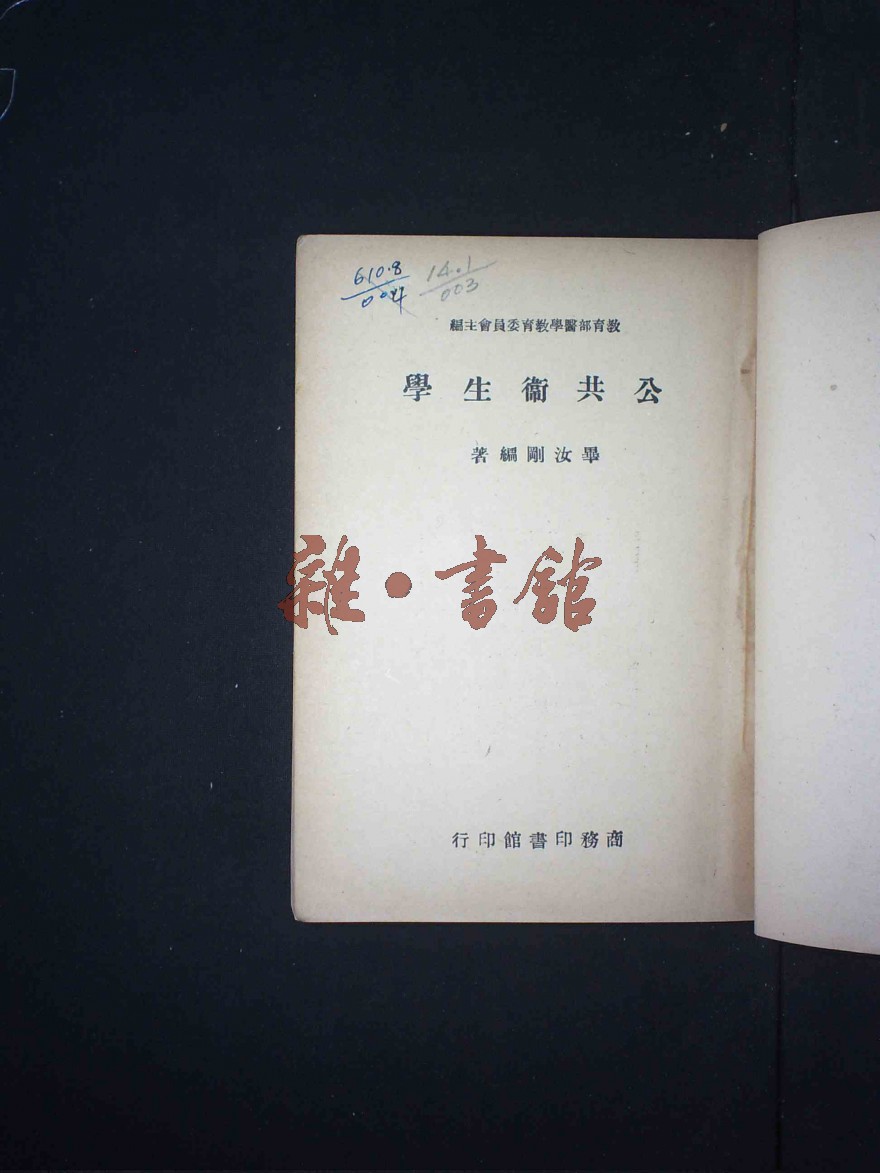 610.8 14.1
004 003
教育部醫學教育委員會主編
公共衞生學
畢汝剛編著
雜·書館
商務印書館印行